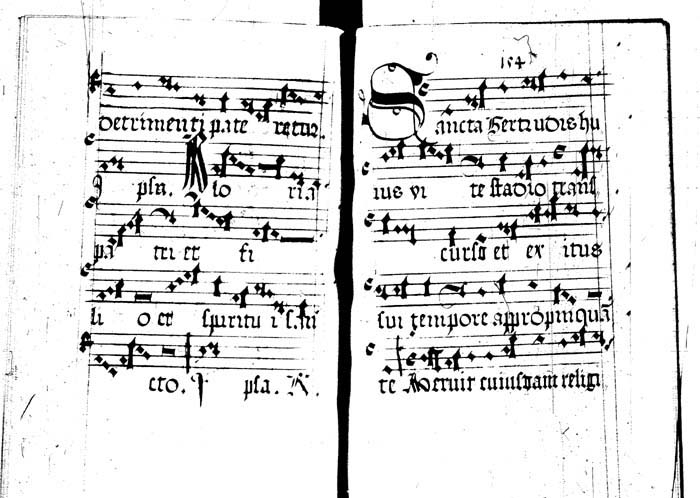 detrimenti pate retur.
Ipsa. Glo ria
pa tri et fi
lio et spiritu i san
cto. Ipsa. R.
154
Sancta Gertrudis hu
ius vi te stadio trans
curso et ex itus
sui tempore appropinquã
te Meruit cuiusdam religi